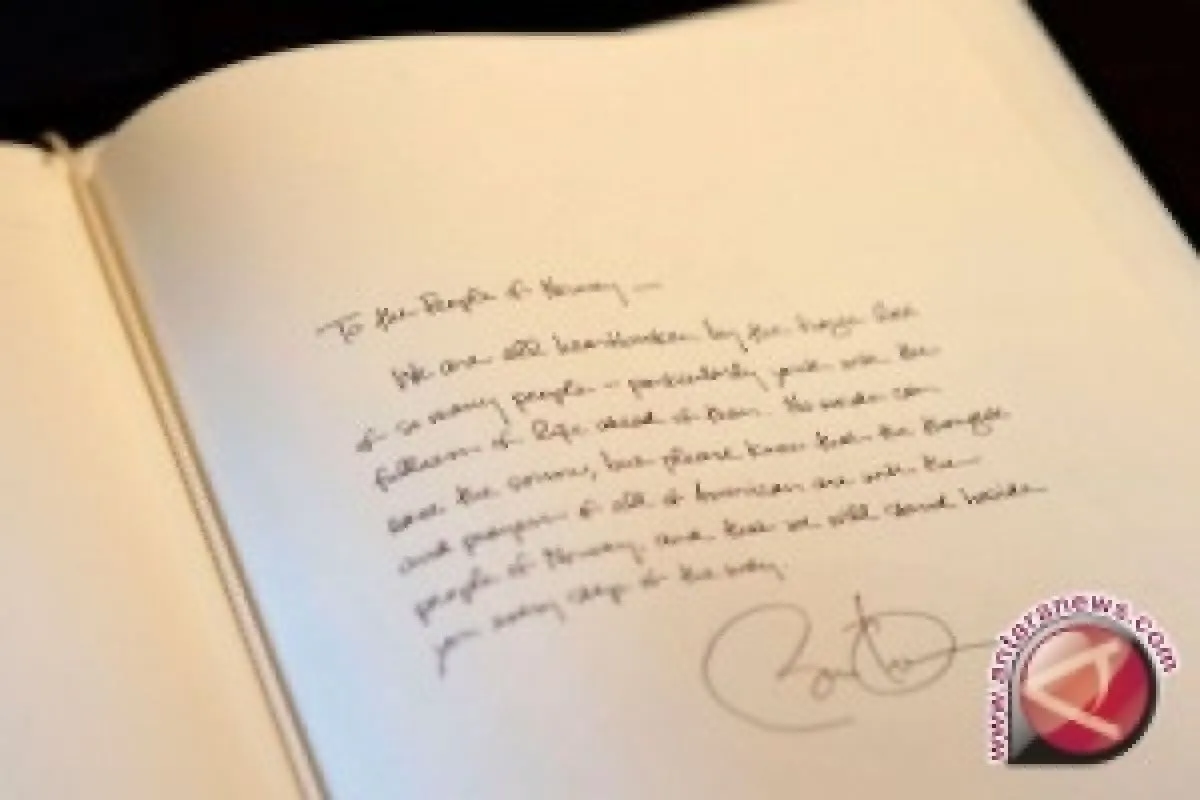 To the People of Norway —
We are all heartbroken by the tragic loss
of so many people – particularly youth with the
fullness of life ahead of them. No words can
ease the sorrow, but please know that the thoughts
and prayers of all Americans are with the
people of Norway, and that we will stand beside
you every step of the way.
www.antaranews.com